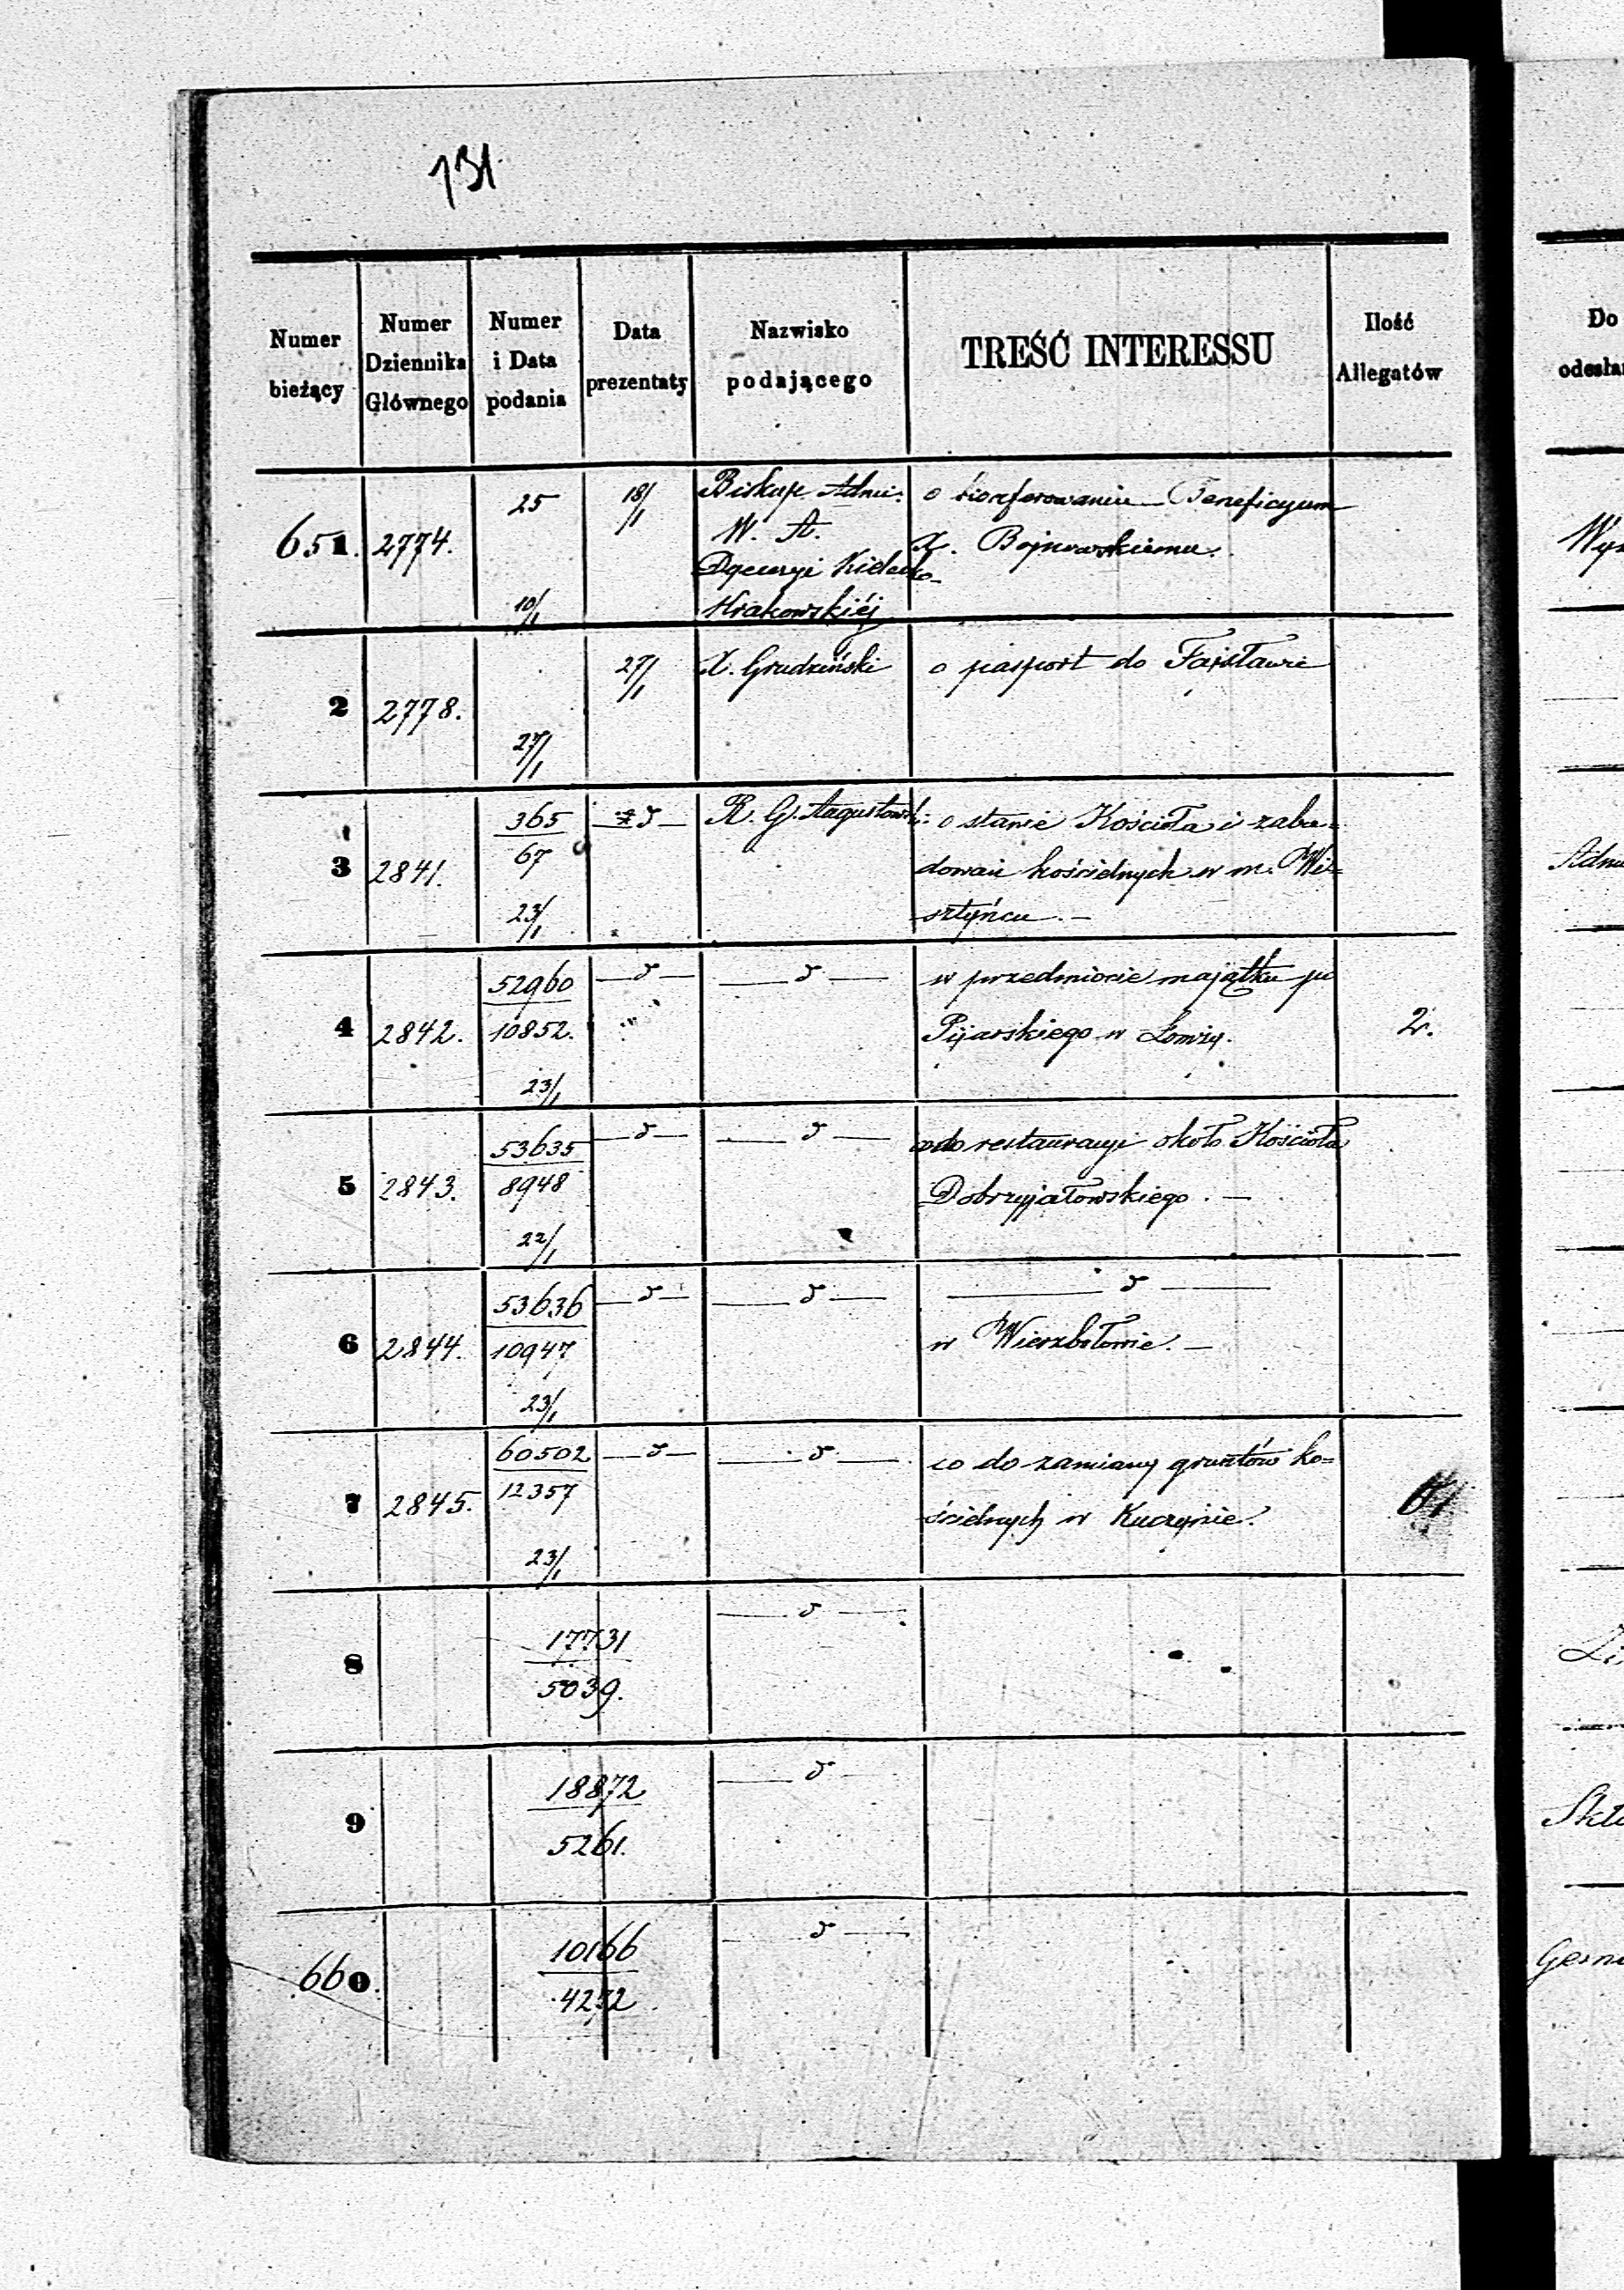 131
Numer bieżący
Numer Dziennika Głównego
Numer i Data podania
Data prezentaty
Nazwisko podającego
TREŚĆ INTERESSU
Ilość Allegatów
Do
651. 2774. 25 10/1 18/1
Biskup Admi:
Dyecezyi Kielecko-
Krakowskiéj
o Beneficyum
X. Bojnowskiemu.
2 2778. 27/1 27/1 X. Grudziński o pasport do
3 2841. 365/67 23/1 R. G. Augustowski:
o stanie Kościoła i zabu=
dowań kościelnych w m. Wi=
sztyńcu. —
4 2842. 52960/10852. 23/1
w przedmiocie majątku po
Pijarskiego w Łomży. 2.
5 2843. 53635/8948 22/1
restauracyi około Kościoła
Dobrzyjałowskiego. —
6 2844. 53636/10947 23/1
w Wierzbołowie. —
7 2845. 60502/12357 23/1
co do zamiany gruntów ko=
ścielnych w Kuczynie.
8 17731/5039.
9 18872/5261.
660. 10166/4232